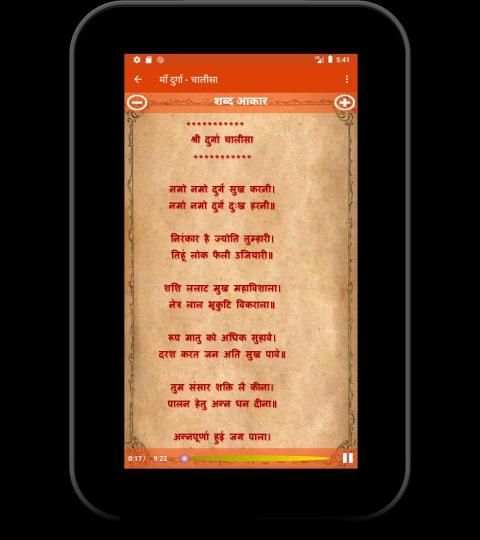 5:41
माँ दुर्गा - चालीसा
शब्द आकार
***********
श्री दुर्गा चालीसा
***********
नमो नमो दुर्गे सुख करनी।
नमो नमो दुर्गे दुःख हरनी॥
निरंकार है ज्योति तुम्हारी।
तिहूं लोक फैली उजियारी॥
शशि ललाट मुख महाविशाला।
नेत्र लाल भृकुटि विकराला॥
रूप मातु को अधिक सुहावे।
दरश करत जन अति सुख पावे॥
तुम संसार शक्ति लै कीना।
पालन हेतु अन्न धन दीना॥
अन्नपूर्णा हुई जग पाला।
0:17 / 9:22